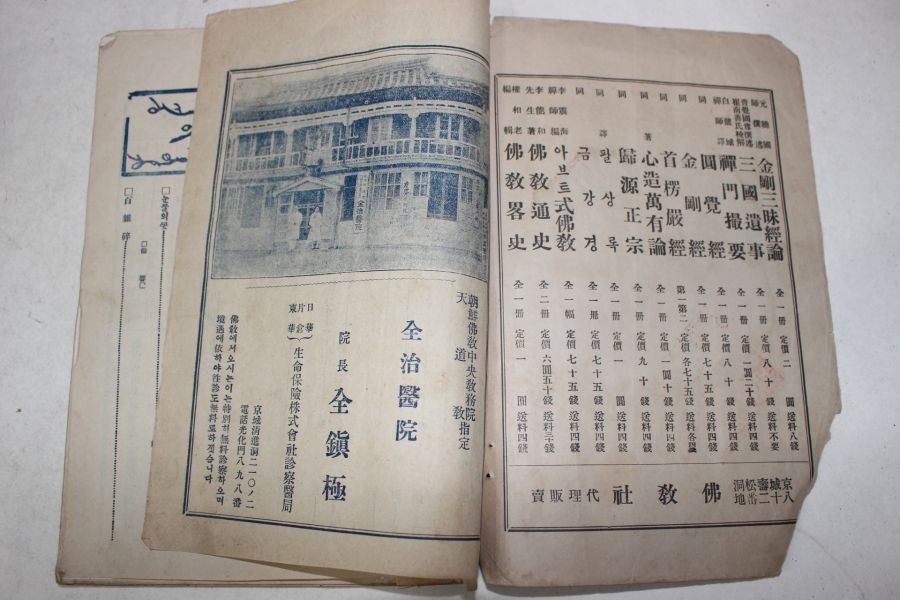 元曉國師撰述 金剛三昧經論 全一冊 定價二圓 送料不要
三國遺事 全一冊 定價八十錢 送料八錢
白龍城禪師譯 禪門撮要 全一冊 定價一圓二十錢 送料四錢
同 圓覺經 全一冊 定價八十錢 送料四錢
同 金剛經 全一冊 定價七十五錢 送料四錢
同 首楞嚴經 第一第二 定價各七十五錢
同著 心造萬有論 全一冊 定價一圓十錢 送料四錢
同 歸源正宗 全一冊 定價九十錢 送料四錢
同譯 팔상록 全一冊 定價一圓 送料四錢
同 금강경 全一冊 定價七十五錢 送料四錢
李震海禪師編 아브트式佛敎 全一幅 定價七十五錢 送料四錢
李能和先生著 佛敎通史 全二冊 定價六圓五十錢
權相老編輯 佛敎畧史 全一冊 定價一圓 送料四錢
京城壽松洞八十二番地
佛敎社
代理販賣
朝鮮佛敎中央敎務院指定
天道敎
全治醫院
院長 全鎭極
日華
片倉
東華
生命保險株式會社診察醫局
京城淸進洞二一〇ノ二
電話光化門八九八番
佛敎에서오시는이는特別히無料診察하오며
境遇에依하야性診도無料로하겟습니다
全治醫院
□눈물의
□百雜碎